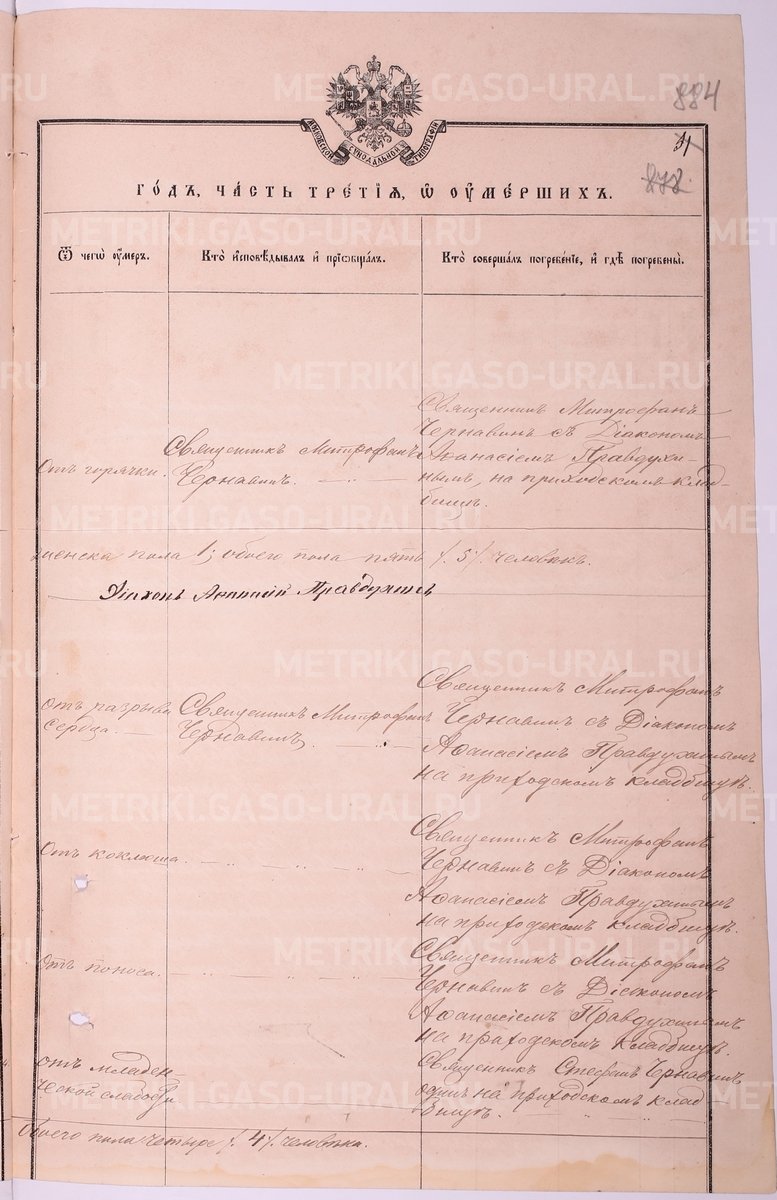 884
МОСКОВСКОЙ СѴНОДАЛЬНОЙ ТИПОГРАФІИ
878
ГО́ДЪ, ЧА́СТЬ ТРЕ́ТІЯ, Ѿ ОУМЕ́РШИХЪ.
Ѿ чегѡ̀ оу́меръ.
Кто̀ и҆сповѣ́дывалъ и҆ прїѡбща́лъ.
Кто̀ соверша́лъ погребе́нїе, и҆ гдѣ̀ погребены̀.
Отъ горячки.
Священникъ Митрофанъ
Чернавинъ.
Священникъ Митрофанъ
Чернавинъ съ Діакономъ
Аѳанасіемъ Правдухи-
нымъ, на приходскомъ клад-
бищѣ.
женска пола 1; обоего пола пять /.5/. человѣкъ.
Діаконъ Аѳанасій Правдухинъ
отъ разрыва
сердца.
Священникъ Митрофанъ
Чернавинъ.
Священникъ Митрофанъ
Чернавинъ съ Діакономъ
Аѳанасіемъ Правдухинымъ
на приходскомъ кладбищѣ.
Отъ коклюша.
Священникъ Митрофанъ
Чернавинъ съ Діакономъ
Аѳанасіемъ Правдухинымъ
на приходскомъ кладбищѣ.
Отъ поноса.
Священникъ Митрофанъ
Чернавинъ съ Діакономъ
Аѳанасіемъ Правдухинымъ
на приходскомъ кладбищѣ.
отъ младен-
ческой слабости
Священникъ Стефанъ Чернавинъ
одинъ на приходскомъ клад
бищѣ.
обоего пола четыре /.4/. человѣка.
METRIKI.GASO-URAL.RU